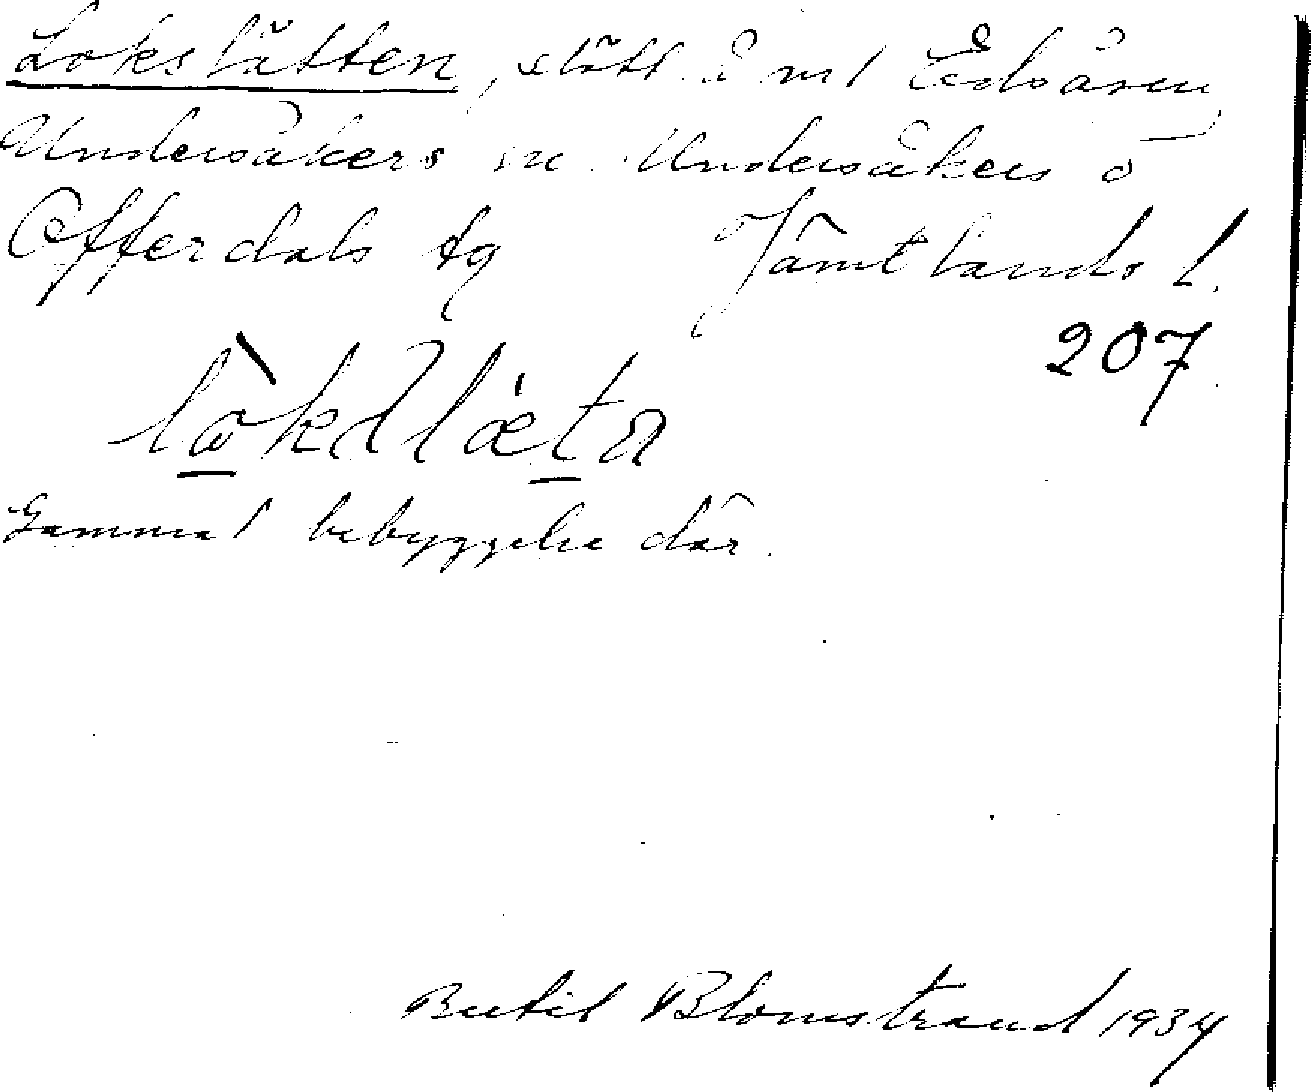 Lokslåtten, slått å m l Edsåsen
Undersåkers sn. Undersåkers o
Offerdals tg Jämtlands l.
207
Gammal bebyggelse där.
Bertil Blomstrand 1934